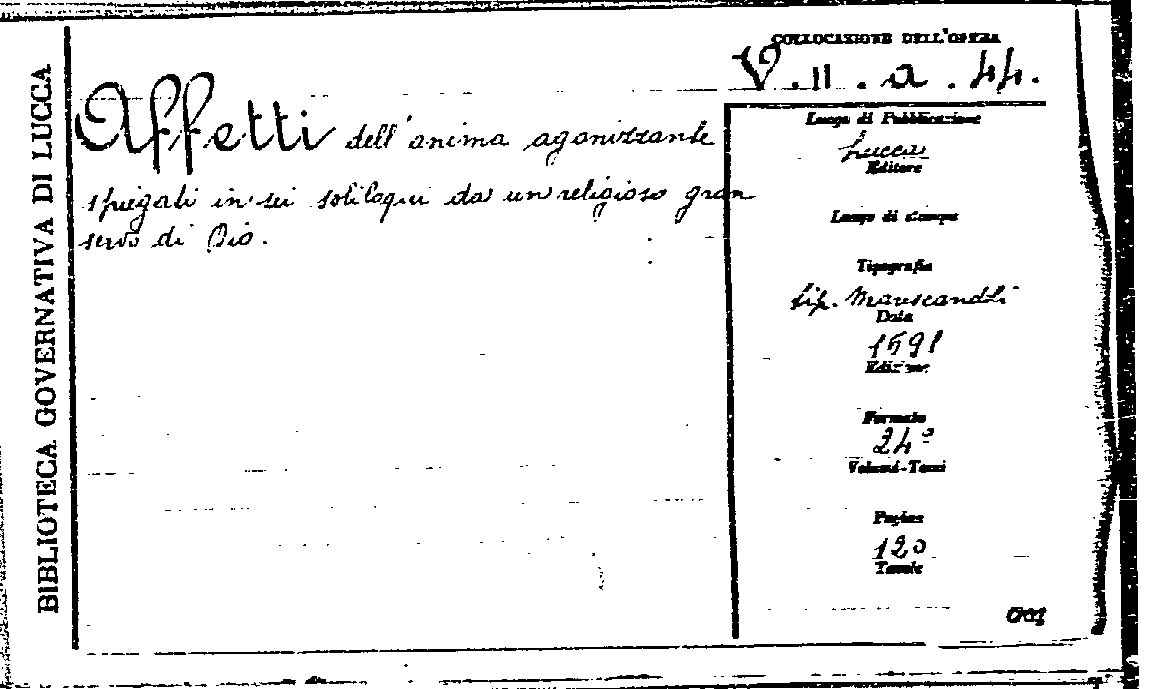 BIBLIOTECA GOVERNATIVA DI LUCCA
COLLOCAZIONE DELL'OPERA
V. II. a. 44.
Affetti dell'anima agonizzante
spiegati in sei soliloqui da un religioso gran
servo di Dio.
Luogo di Pubblicazione
Lucca
Editore
Luogo di stampa
Tipografia
tip. Marescandoli
Data
1691
Edizione
Formato
24°
Volumi-Tomi
Pagine
120
Tavole